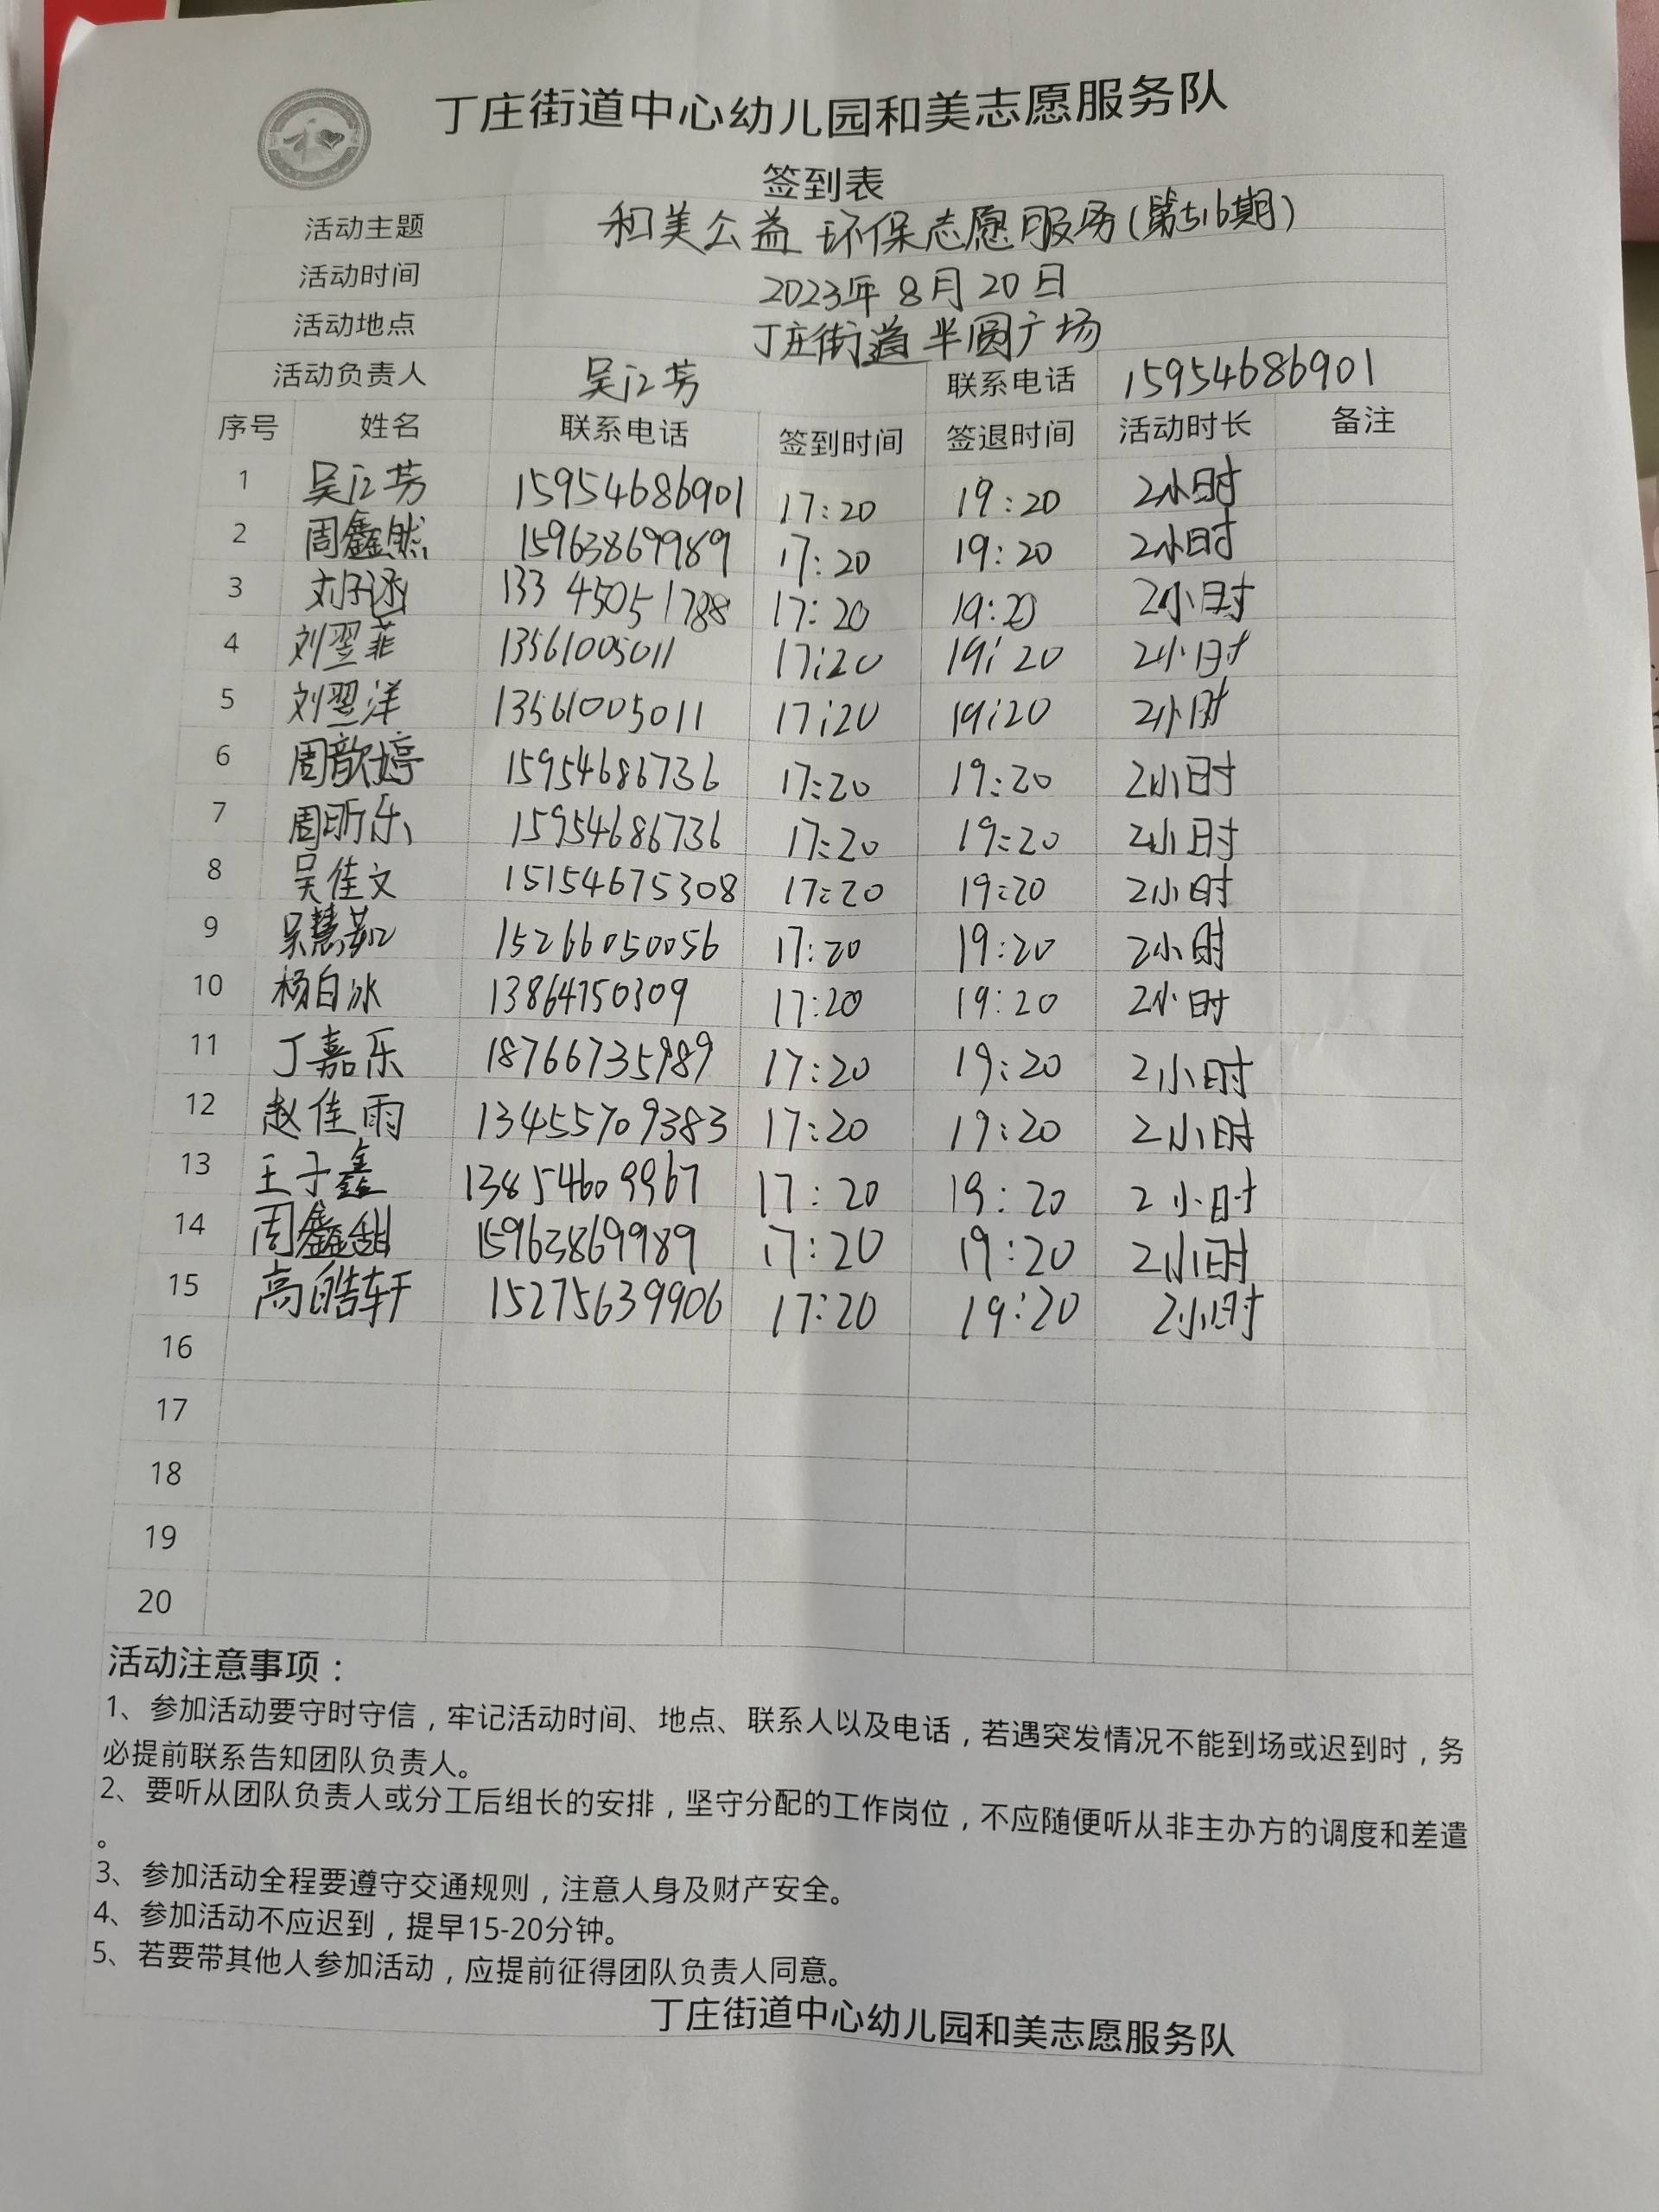 丁庄街道中心幼儿园和美志愿服务队
签到表
活动主题 和美公益 环保志愿服务(第516期)
活动时间 2023年8月20日
活动地点 丁庄街道半圆广场
活动负责人 吴江芳 联系电话 15954686901
序号 姓名 联系电话 签到时间 签退时间 活动时长 备注
1 吴江芳 15954686901 17:20 19:20 2小时
2 周鑫然 15963869989 17:20 19:20 2小时
3 刘子涵 133 45051788 17:20 19:20 2小时
4 刘翌菲 13561005011 17:20 19:20 2小时
5 刘翌洋 13561005011 17:20 19:20 2小时
6 周歆婷 15954686736 17:20 19:20 2小时
7 周昕乐 15954686736 17:20 19:20 2小时
8 吴佳文 15154675308 17:20 19:20 2小时
9 吴慧茹 15266050056 17:20 19:20 2小时
10 杨白冰 13864750309 17:20 19:20 2小时
11 丁嘉乐 18766735989 17:20 19:20 2小时
12 赵佳雨 13455709383 17:20 19:20 2小时
13 王子鑫 13854609967 17:20 19:20 2小时
14 周鑫甜 15963869989 17:20 19:20 2小时
15 高皓轩 15275639906 17:20 19:20 2小时
16
17
18
19
20
活动注意事项：
1、参加活动要守时守信，牢记活动时间、地点、联系人以及电话，若遇突发情况不能到场或迟到时，务
必提前联系告知团队负责人。
2、要听从团队负责人或分工后组长的安排，坚守分配的工作岗位，不应随便听从非主办方的调度和差遣
。
3、参加活动全程要遵守交通规则，注意人身及财产安全。
4、参加活动不应迟到，提早15-20分钟。
5、若要带其他人参加活动，应提前征得团队负责人同意。
丁庄街道中心幼儿园和美志愿服务队